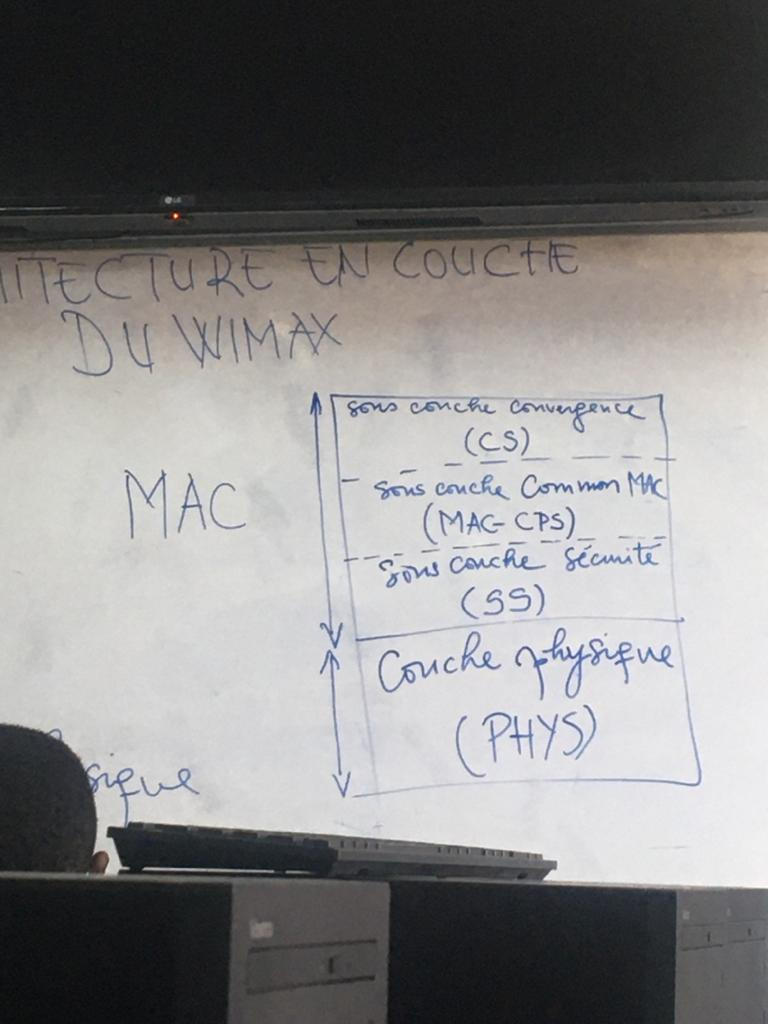 LG
HITECTURE EN COUCHE
DU WIMAX
sous couche convergence
(CS)
MAC
sous couche Common MAC
(MAC-CPS)
sous couche sécurité
(SS)
Couche physique
(PHYS)
sique